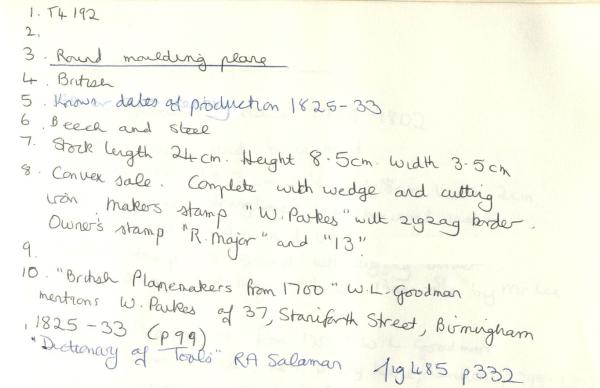 1. T4 192
2.
3. Round moulding plane
4. British
5. Known dates of production 1825-33
6. Beech and steel
7. Stock length 24cm. Height 8.5cm. Width 3.5cm
8. Convex sale. Complete with wedge and cutting
iron makers stamp "W. Parkes" with zigzag border.
Owner's stamp "R. Major" and "13".
9.
10. "British Planemakers from 1700" W.L. Goodman
mentions W. Parkes of 37, Staniforth Street, Birmingham
, 1825-33 (p99)
"Dictionary of Tools" RA Salaman fig 485 p332